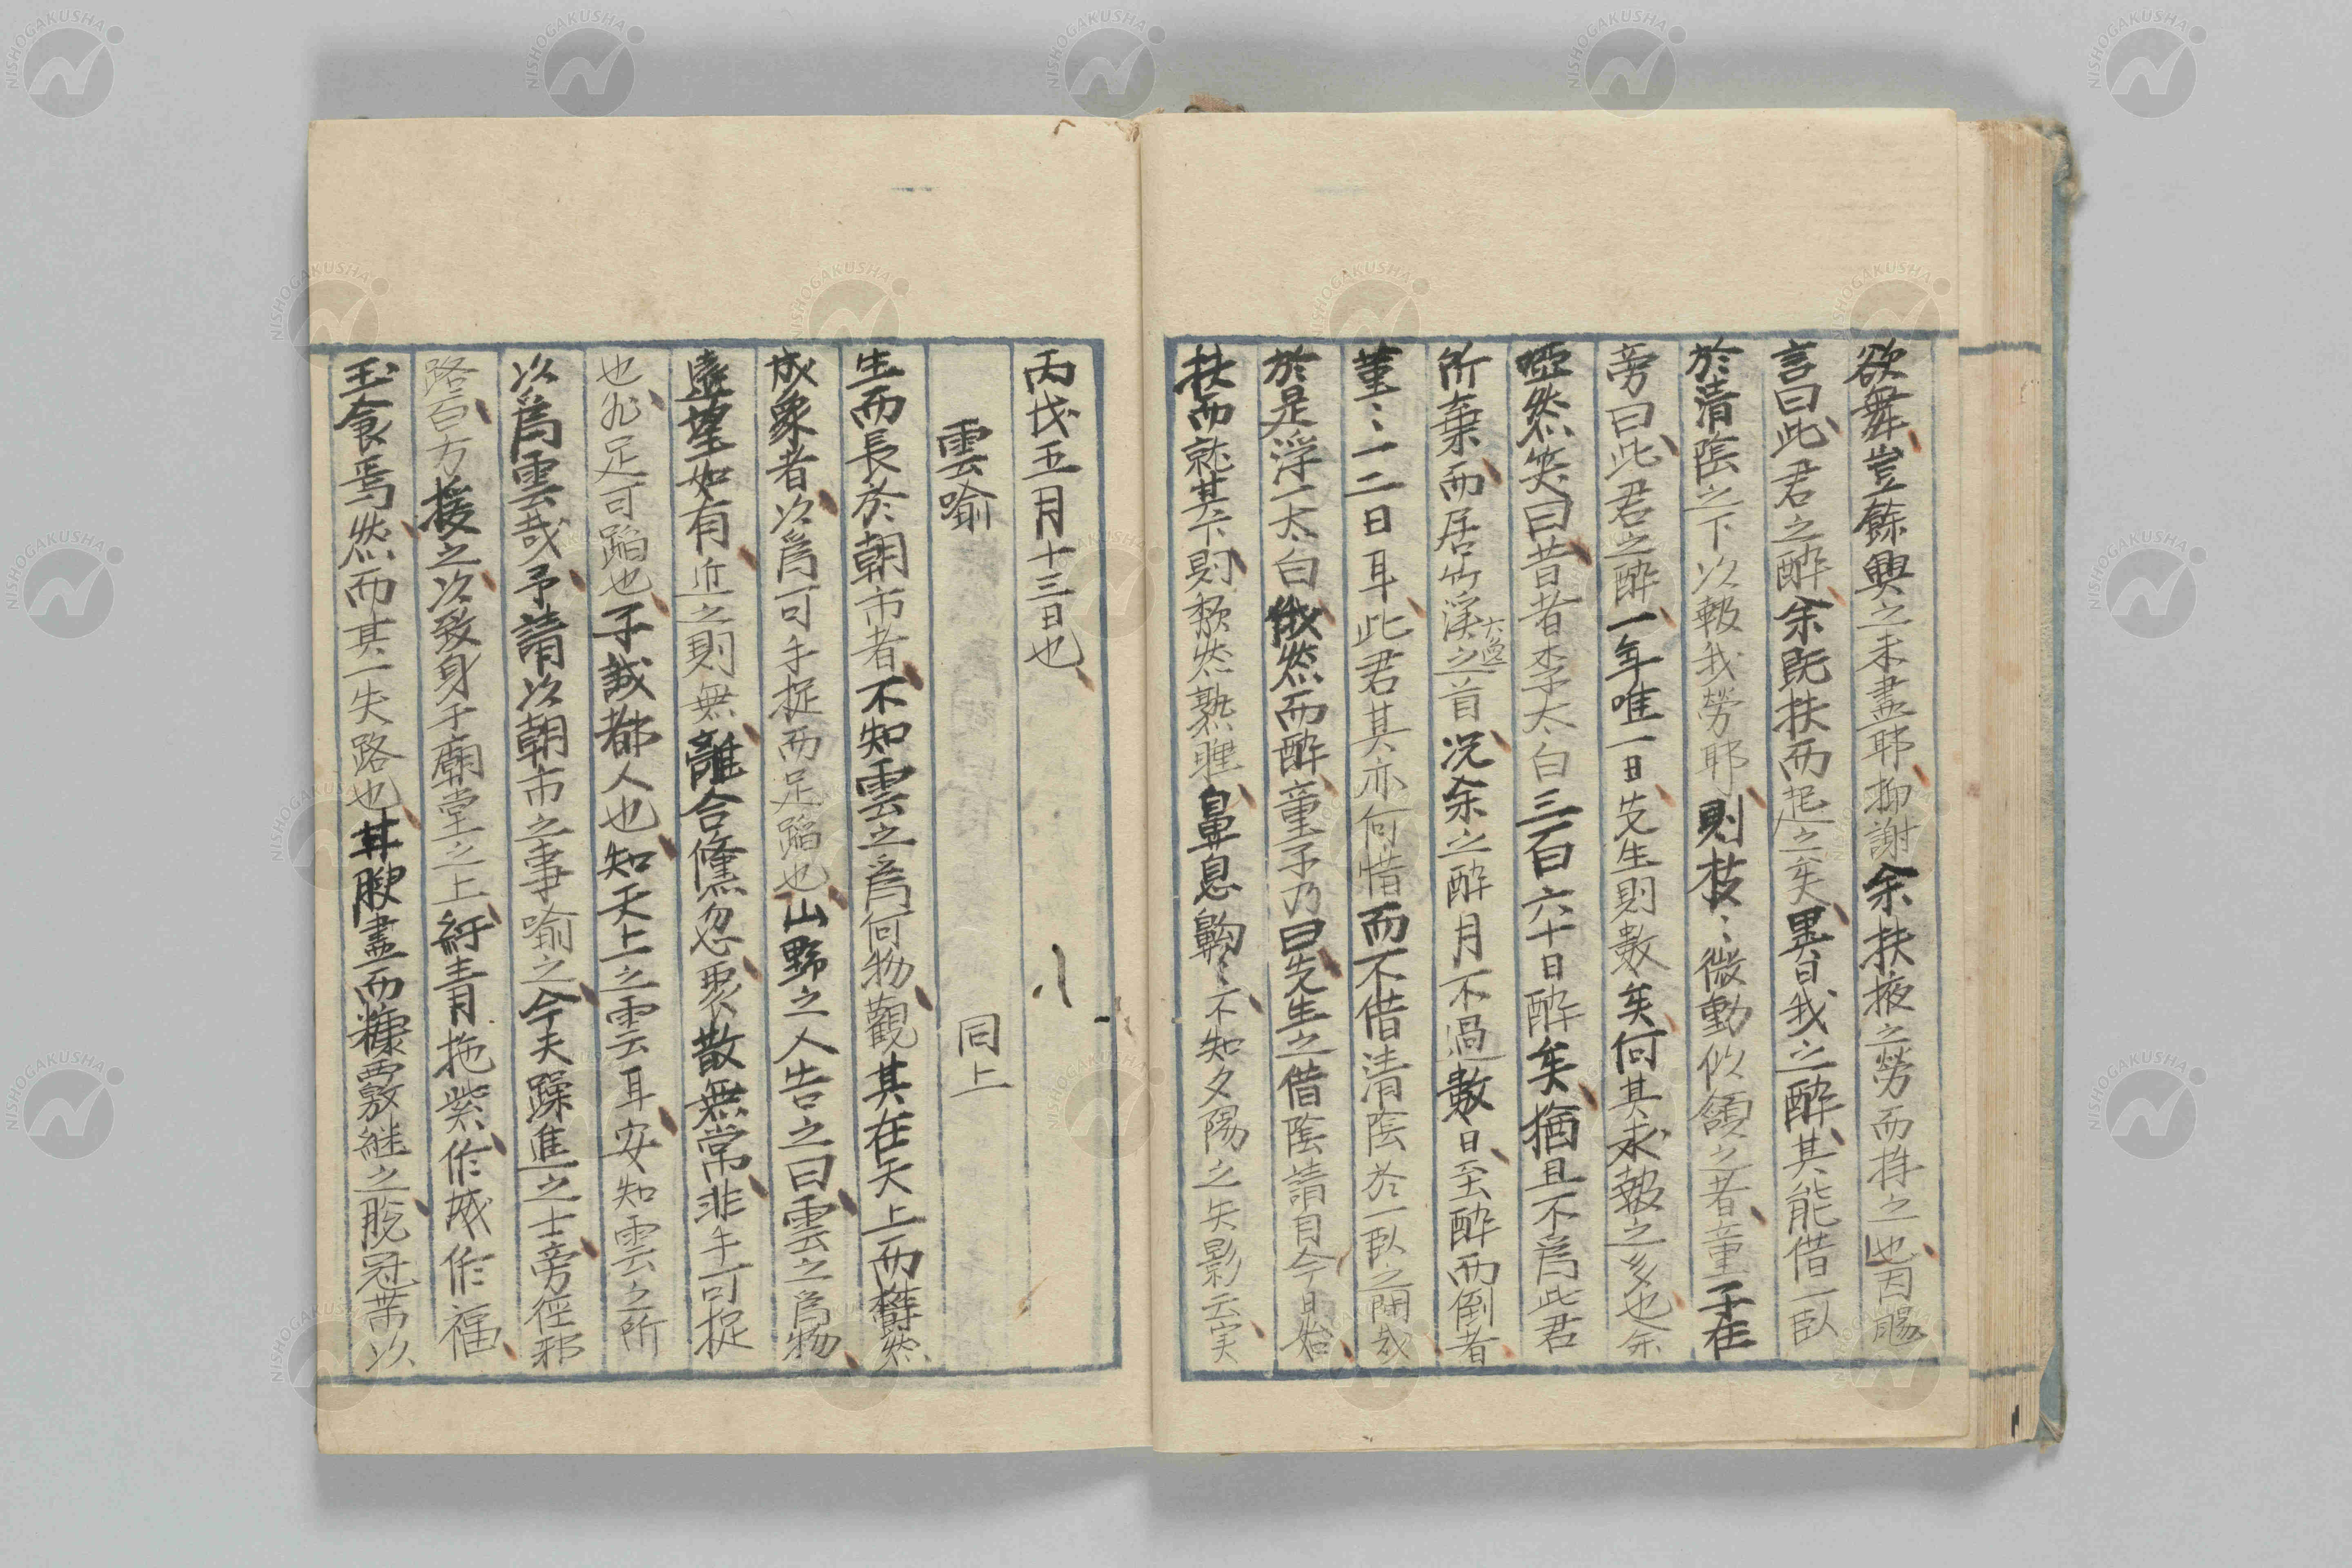 欲舞豈餘興之未盡耶抑謝余扶掖之勞而持之也因賜
言曰此君之醉余既扶而起之矣異日我之醉其能借一臥
於清陰之下以報我勞耶則枝〻微動似頷之者童子在
旁曰此君之醉一年唯一日先生則數矣何其求報之多也余
啞然笑曰昔者李太白三百六十日醉矣猶且不爲此君
所棄而居竹溪六逸之首况余之醉月不過數日至醉而倒者
菫〻一二日耳此君其亦何惜而不借清陰於一臥之間哉
於是浮一太白俄然而醉童子乃曰先生之借陰請自今日始
扶而就其下則頽然熟睡鼻息齁〻不知夕陽之矢影云実
丙戌五月十三日也
雲喻 同上
生而長於朝市者不知雲之爲何物觀其在天上而欝然
成象者以爲可手捉而足蹈也山野之人告之曰雲之爲物
遠望如有近之則無離合儵忽聚散無常非手可捉
也非足可蹈也子誠都人也知天上之雲耳安知雲之所
以爲雲哉予請以朝市之事喻之今夫躁進之士旁徑邪
路百方援之以致身于廟堂之上紆青拖紫作威作福
玉食焉然而其一失路也甘腴盡而糠覈継之脫冠帯以
NISHOGAKUSHA